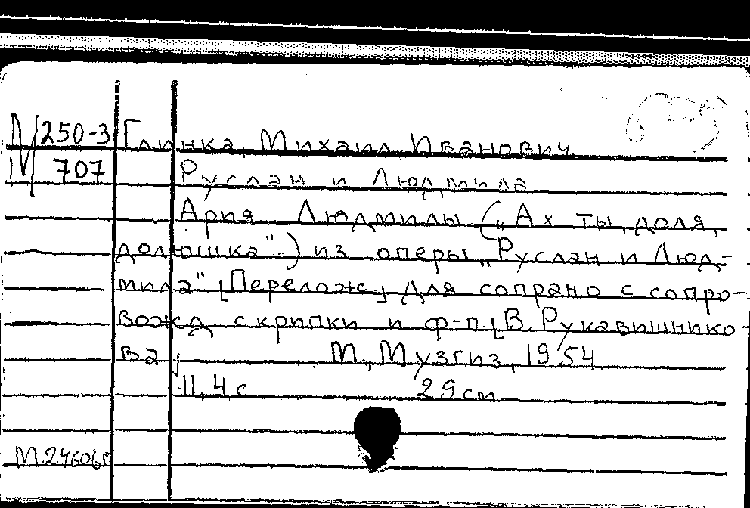 М 250-3 Глинка, Михаил Иванович
М 707 Руслан и Людмила
Ария Людмилы („Ах ты, доля,
долюшка".) из оперы „Руслан и Люд-
мила" [Перелож.] для сопрано с сопро-
вожд. скрипки и ф-п. [В. Рукавишнико-
ва]
М., Музгиз, 1954
11, 4 с 29 см